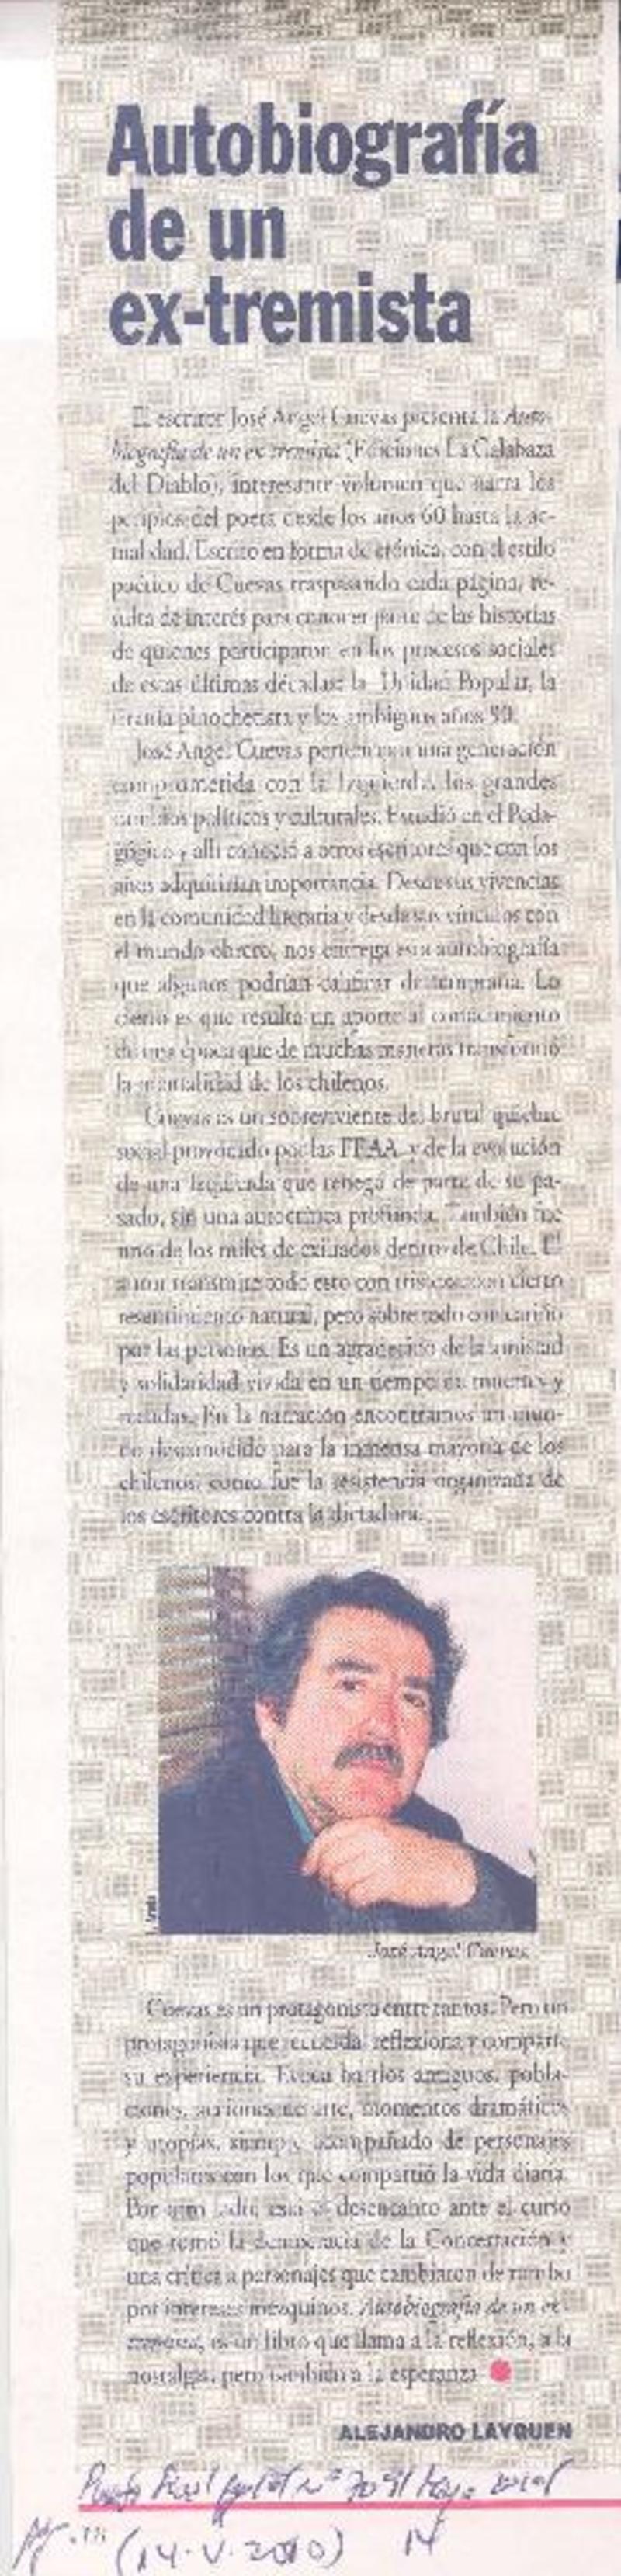 Autobiografía
de un
ex-tremista
El escritor José Angel Cuevas presenta la Auto-
biografía de un ex-tremista (Ediciones La Calabaza
del Diablo), interesante volumen que narra los
periplos del poeta desde los años 60 hasta la ac-
tualidad. Escrito en forma de crónica, con el estilo
poético de Cuevas traspasando cada página, re-
sulta de interés para conocer parte de las historias
de quienes participaron en los procesos sociales
de estas últimas décadas: la Unidad Popular, la
tiranía pinochetista y los ambiguos años 90.
José Angel Cuevas perteneció a una generación
comprometida con la Izquierda, los grandes
cambios políticos y culturales. Estudió en el Peda-
gógico y allí conoció a otros escritores que con los
años adquirirían importancia. Desde sus vivencias
en la comunidad literaria y desde sus vínculos con
el mundo obrero, nos entrega esta autobiografía
que algunos podrían calificar de temprana. Lo
cierto es que resulta un aporte al conocimiento
de una época que de muchas maneras transformó
la mentalidad de los chilenos.
Cuevas es un sobreviviente del brutal quiebre
social provocado por las FFAA y de la evolución
de una Izquierda que renegó de parte de su pa-
sado, sin una autocrítica profunda. También fue
uno de los miles de exiliados dentro de Chile. El
autor transmite todo esto con tristeza, con cierto
resentimiento natural, pero sobre todo con cariño
por las personas. Es un agradecido de la amistad
y solidaridad vivida en un tiempo de muertes y
En la narración encontramos un mun-
do desconocido para la inmensa mayoría de los
chilenos, como fue la resistencia organizada de
los escritores contra la dictadura.
José Angel Cuevas
Cuevas es un protagonista entre tantos. Pero un
protagonista que recuerda, reflexiona y comparte
su experiencia. Evoca barrios antiguos, pobla-
ciones, acciones de arte, momentos dramáticos
y utopías, siempre acompañado de personajes
populares con los que compartió la vida diaria.
Por otro lado, está el desencanto ante el curso
que tomó la democracia de la Concertación y
una crítica a personajes que cambiaron de rumbo
por intereses mezquinos. Autobiografía de un ex-
tremista, es un libro que llama a la reflexión, a la
nostalgia, pero también a la esperanza
ALEJANDRO LAVQUEN
Punto Final n° 709
(14.V.2010) 14